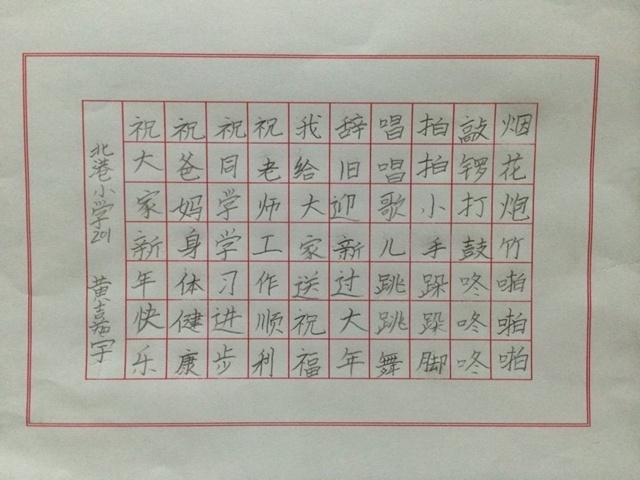 烟花炮竹啪啪啪
敲锣打鼓咚咚咚
拍拍小手跺跺脚
唱唱歌儿跳跳舞
辞旧迎新过大年
我给大家送祝福
祝老师工作顺利
祝同学学习进步
祝爸妈身体健康
祝大家新年快乐
北港小学201 黄嘉宇